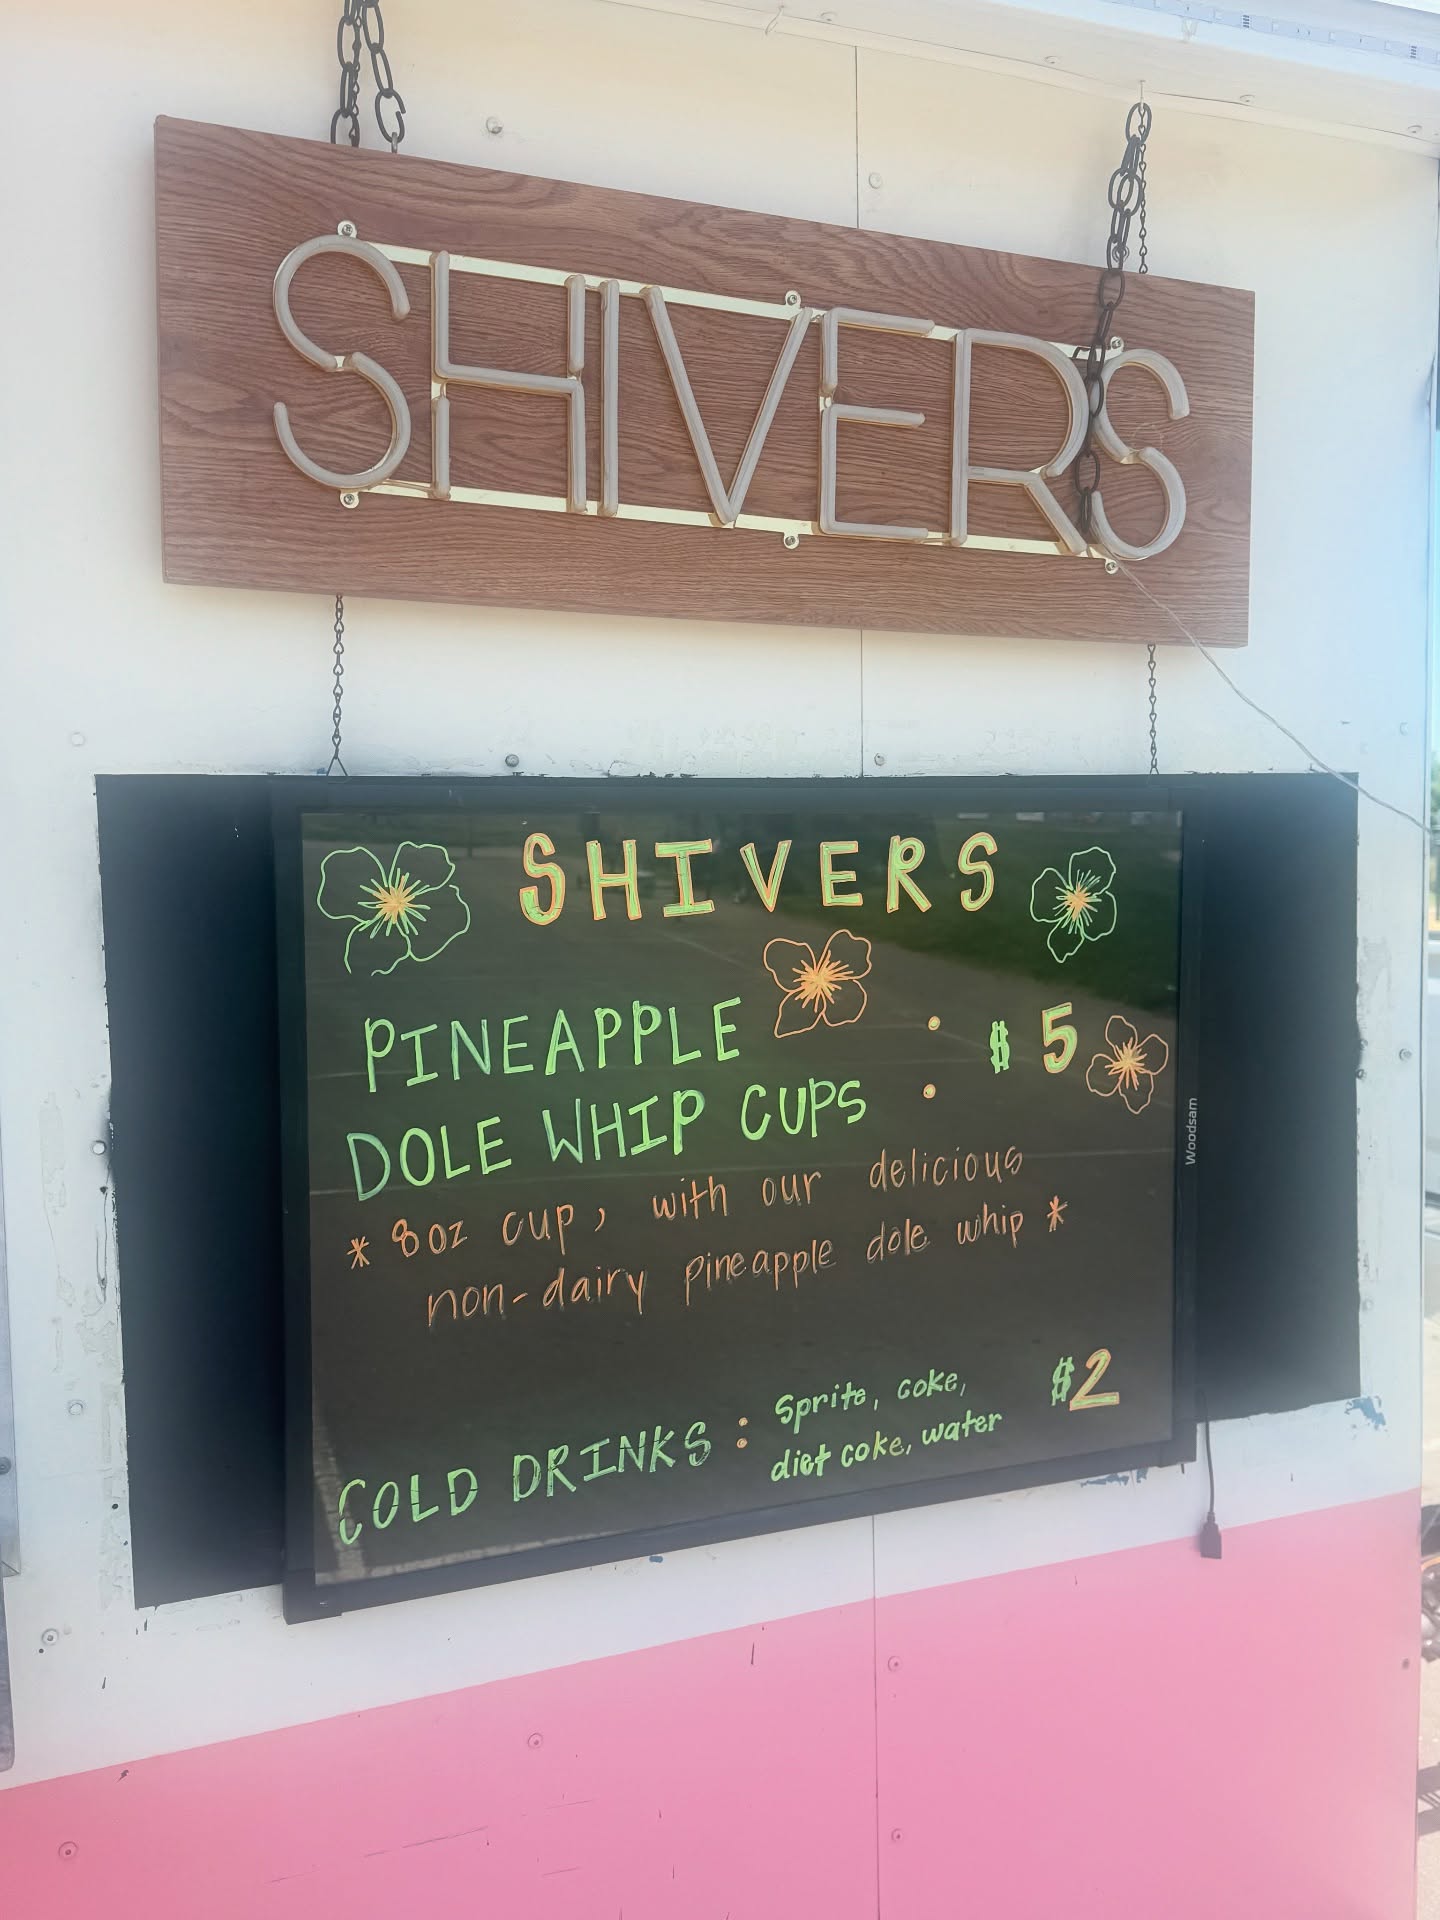 SHIVERS
SHIVERS
PINEAPPLE
DOLE WHIP CUPS : $5
* 8oz cup, with our delicious
non-dairy pineapple dole whip *
COLD DRINKS : Sprite, coke,
diet coke, water
$2
Woodsam